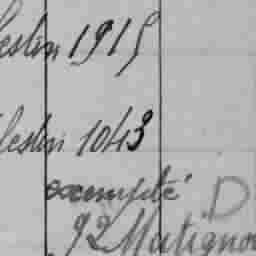 estin 1915
lestin 1043
exempté D
92 Matignon